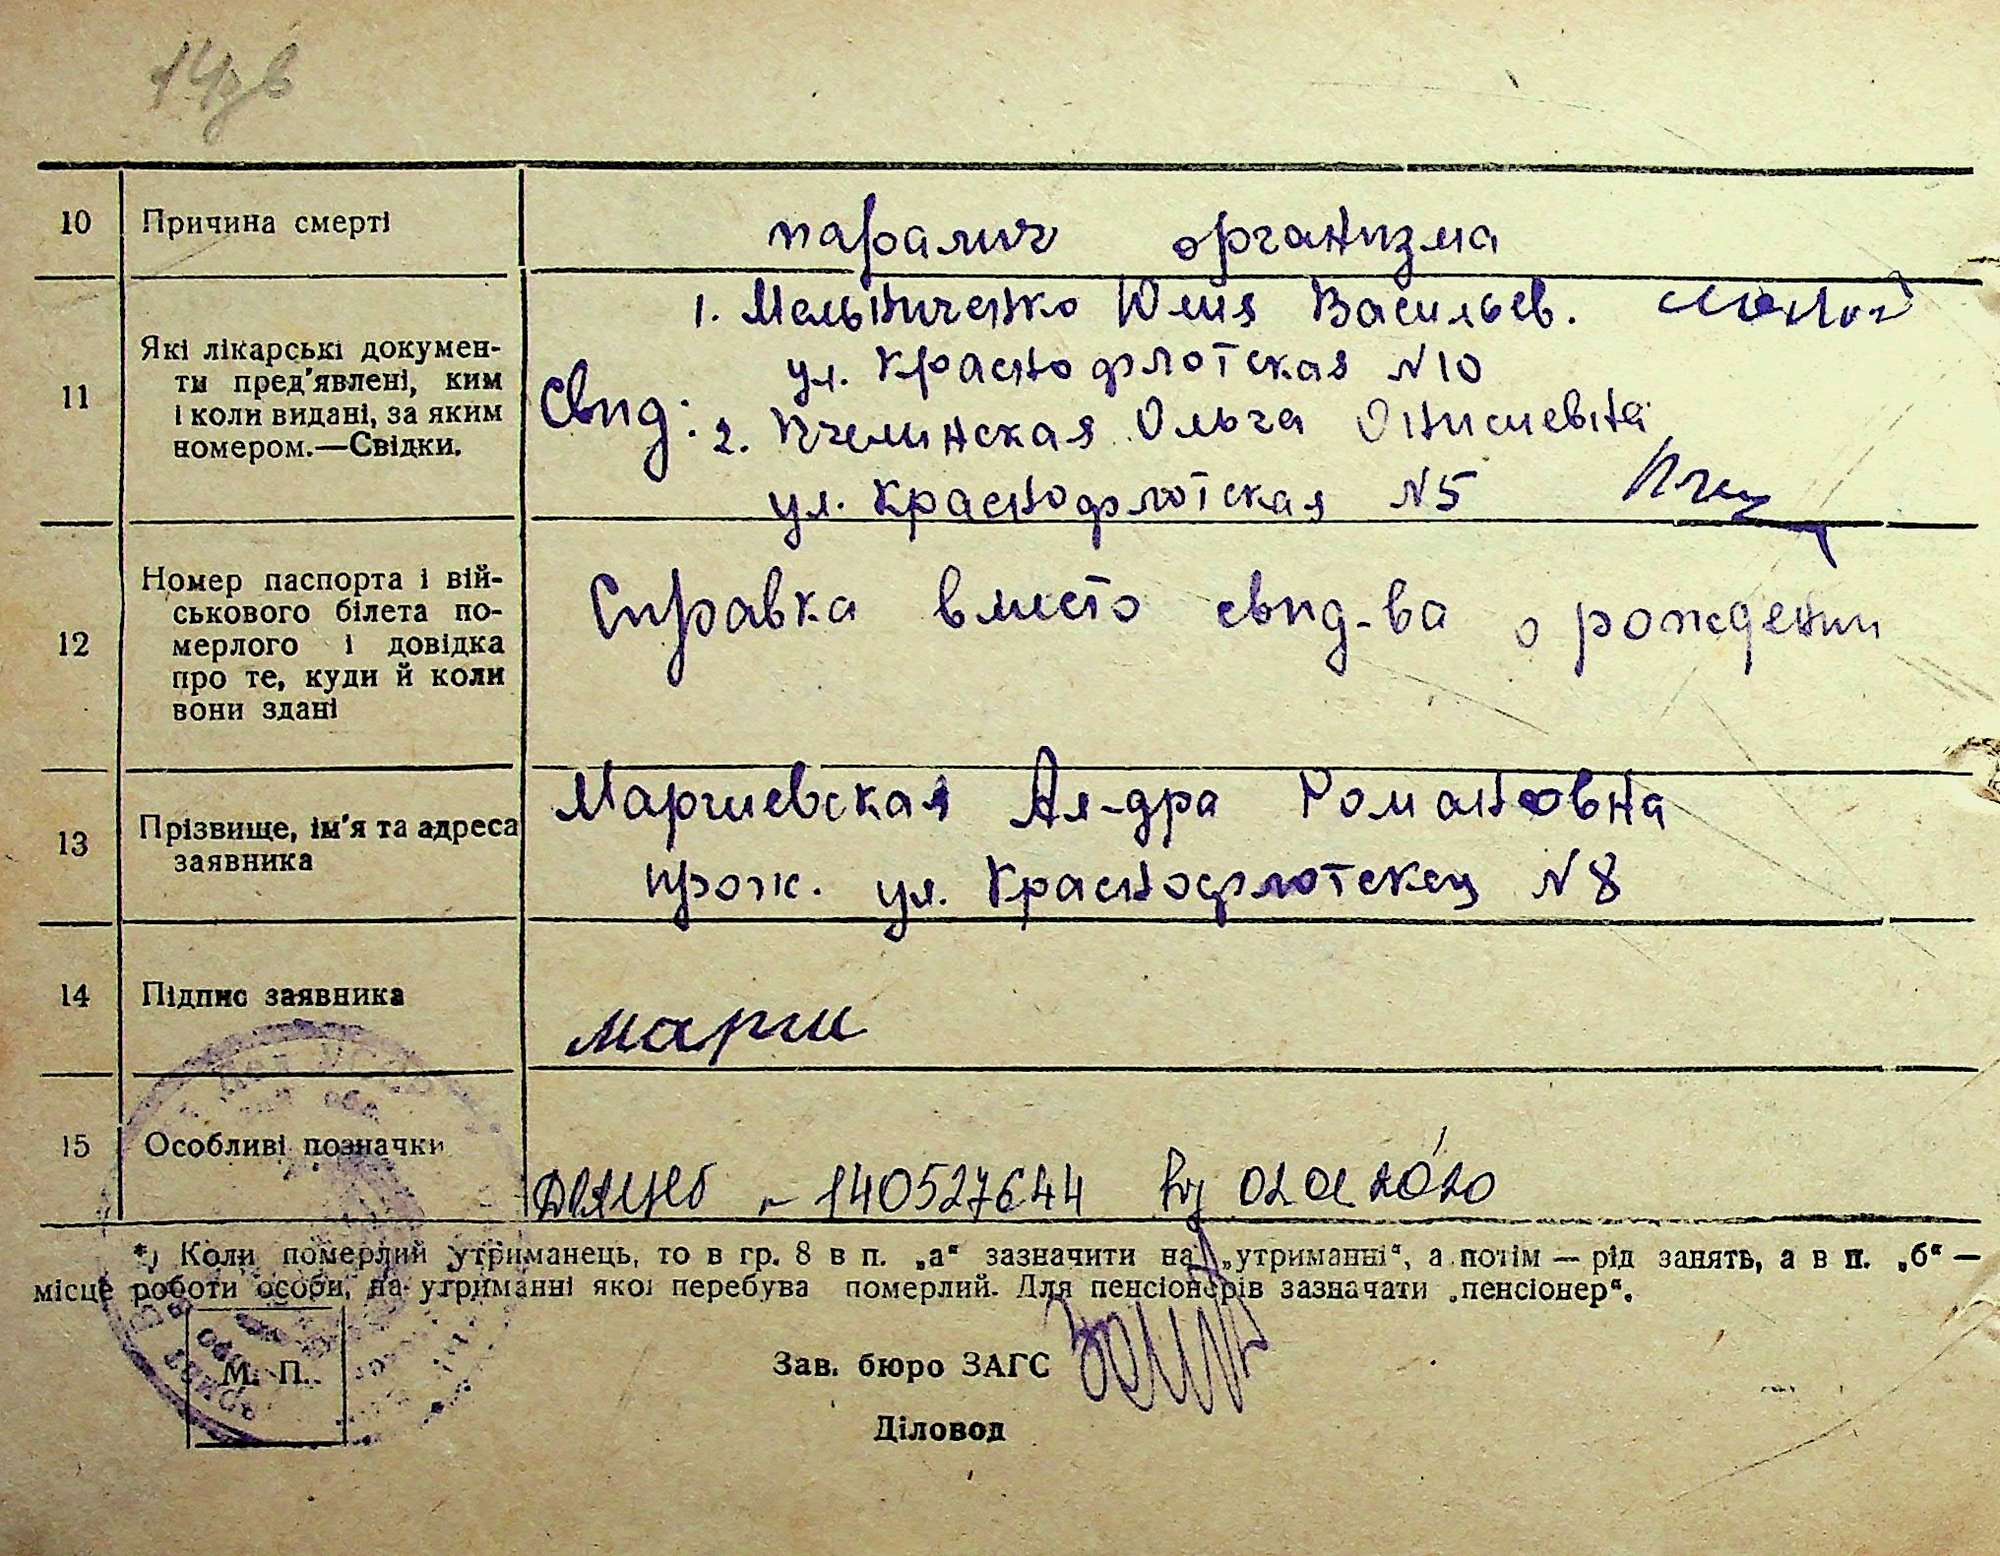 10 Причина смерті паралич организма
11 Які лікарські докумен-
ти пред'явлені, ким
і коли видані, за яким
номером.—Свідки.
Свид:
1. Мельниченко Юлия Васильев.
ул. Краснофлотская №10
2. Пчелинская Ольга Онисиевна
ул. Краснофлотская №5
12 Номер паспорта і вій-
ськового білета по-
мерлого і довідка
про те, куди й коли
вони здані
Справка вместо свид-ва о рождении
13 Прізвище, ім'я та адреса
заявника
Маргиевская Ал-дра Романовна
прож. ул. Краснофлотской №8
14 Підпис заявника
15 Особливі позначки
140527644 02 01 2020
*) Коли померлий утриманець, то в гр. 8 в п. „а" зазначити на „утриманні", а потім — рід занять, а в п. „б" —
місце роботи особи, на утриманні якої перебува померлий. Для пенсіонерів зазначати „пенсіонер".
М. П.
Зав. бюро ЗАГС
Діловод